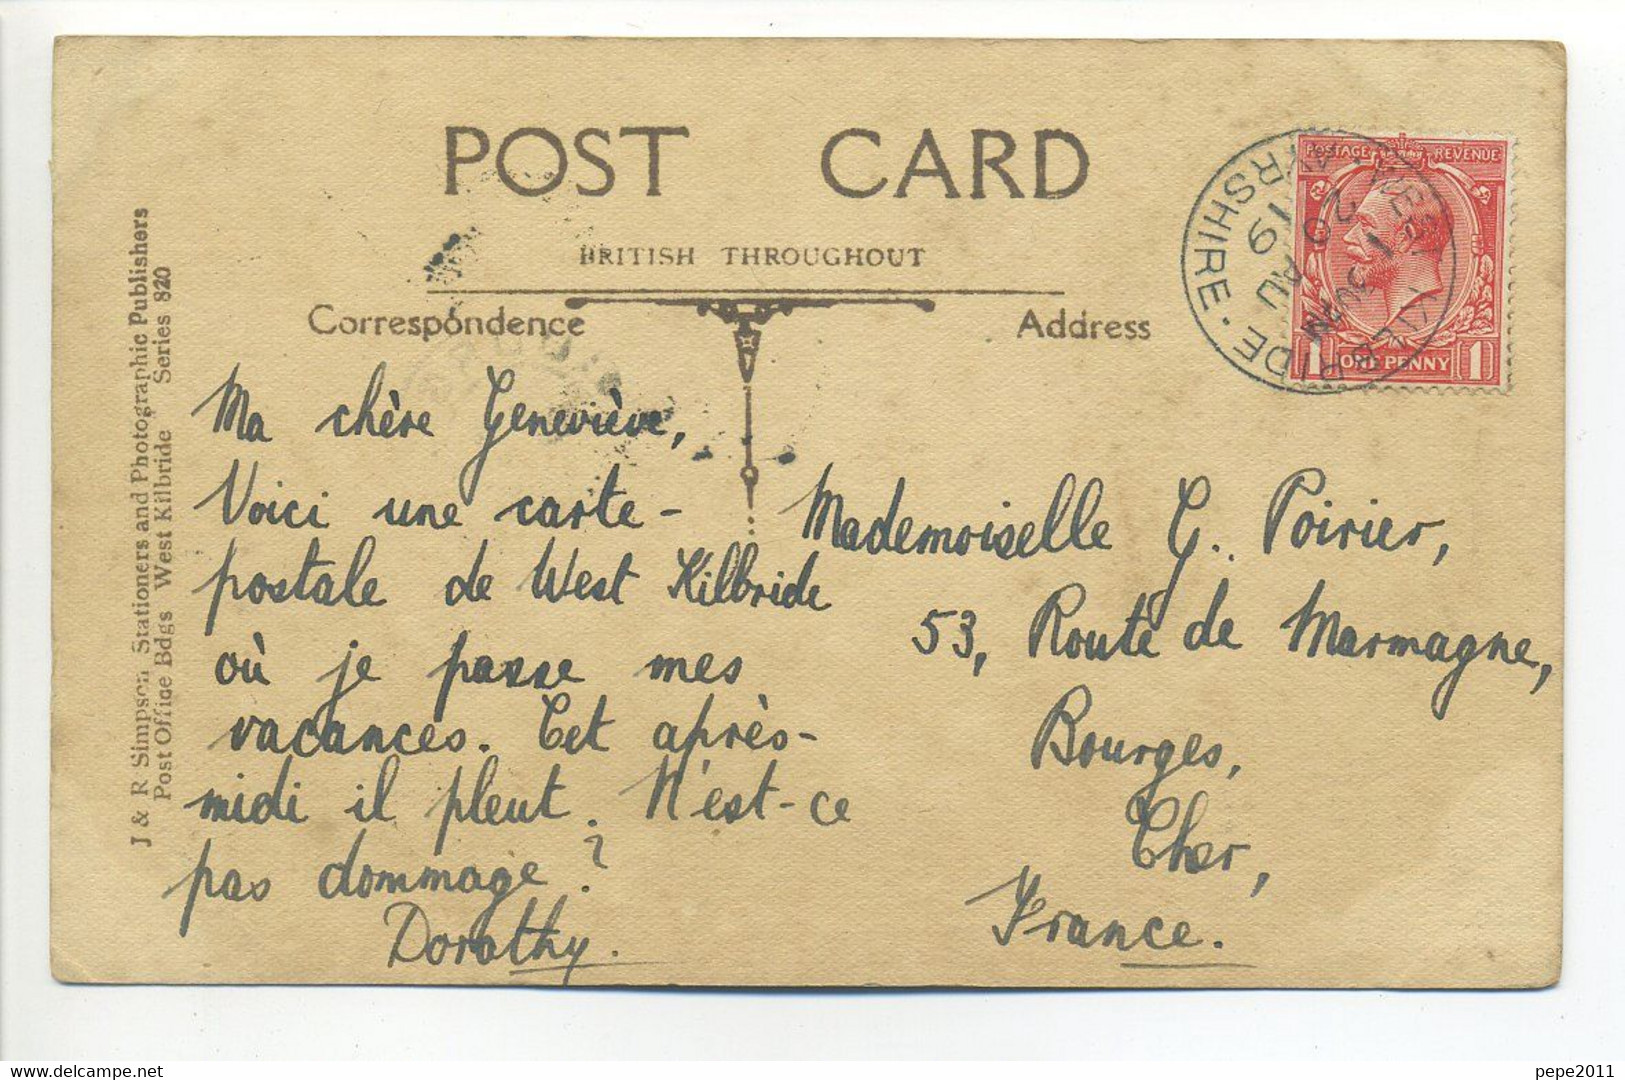 POST CARD
BRITISH THROUGHOUT
Correspondence
Address
J & R Simpson Stationers and Photographic Publishers
Post Office Bdgs West Kilbride Series 820
Ma chère Geneviève,
Voici une carte-
postale de West Kilbride
où je passe mes
vacances. Cet après-
midi il pleut. N'est-ce
pas dommage?
Dorothy.
Mademoiselle G. Poirier,
53, Route de Marmagne,
Bourges,
Cher,
France.
POSTAGE REVENUE
1 ONE PENNY 1
WEST KILBRIDE · AYRSHIRE ·
20 AU
19
pepe2011